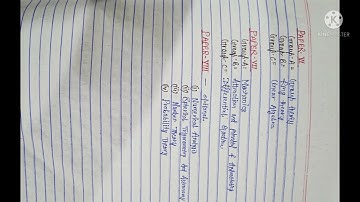 PAPER-VI
Group-A= Group Theory
Group-B= Ring Theory
Group-C= Linear Algebra
PAPER-VII
Group-A: Mechanics
Group-B- Attraction and Potential & Hydrostatics
Group-C= Differential Equation
PAPER-VIII
optional-
(i) Numerical Analysis
(ii) Spherical Trigonometry and Astronomy
(iii) Number Theory
(iv) Probability Theory
KINEMASTER